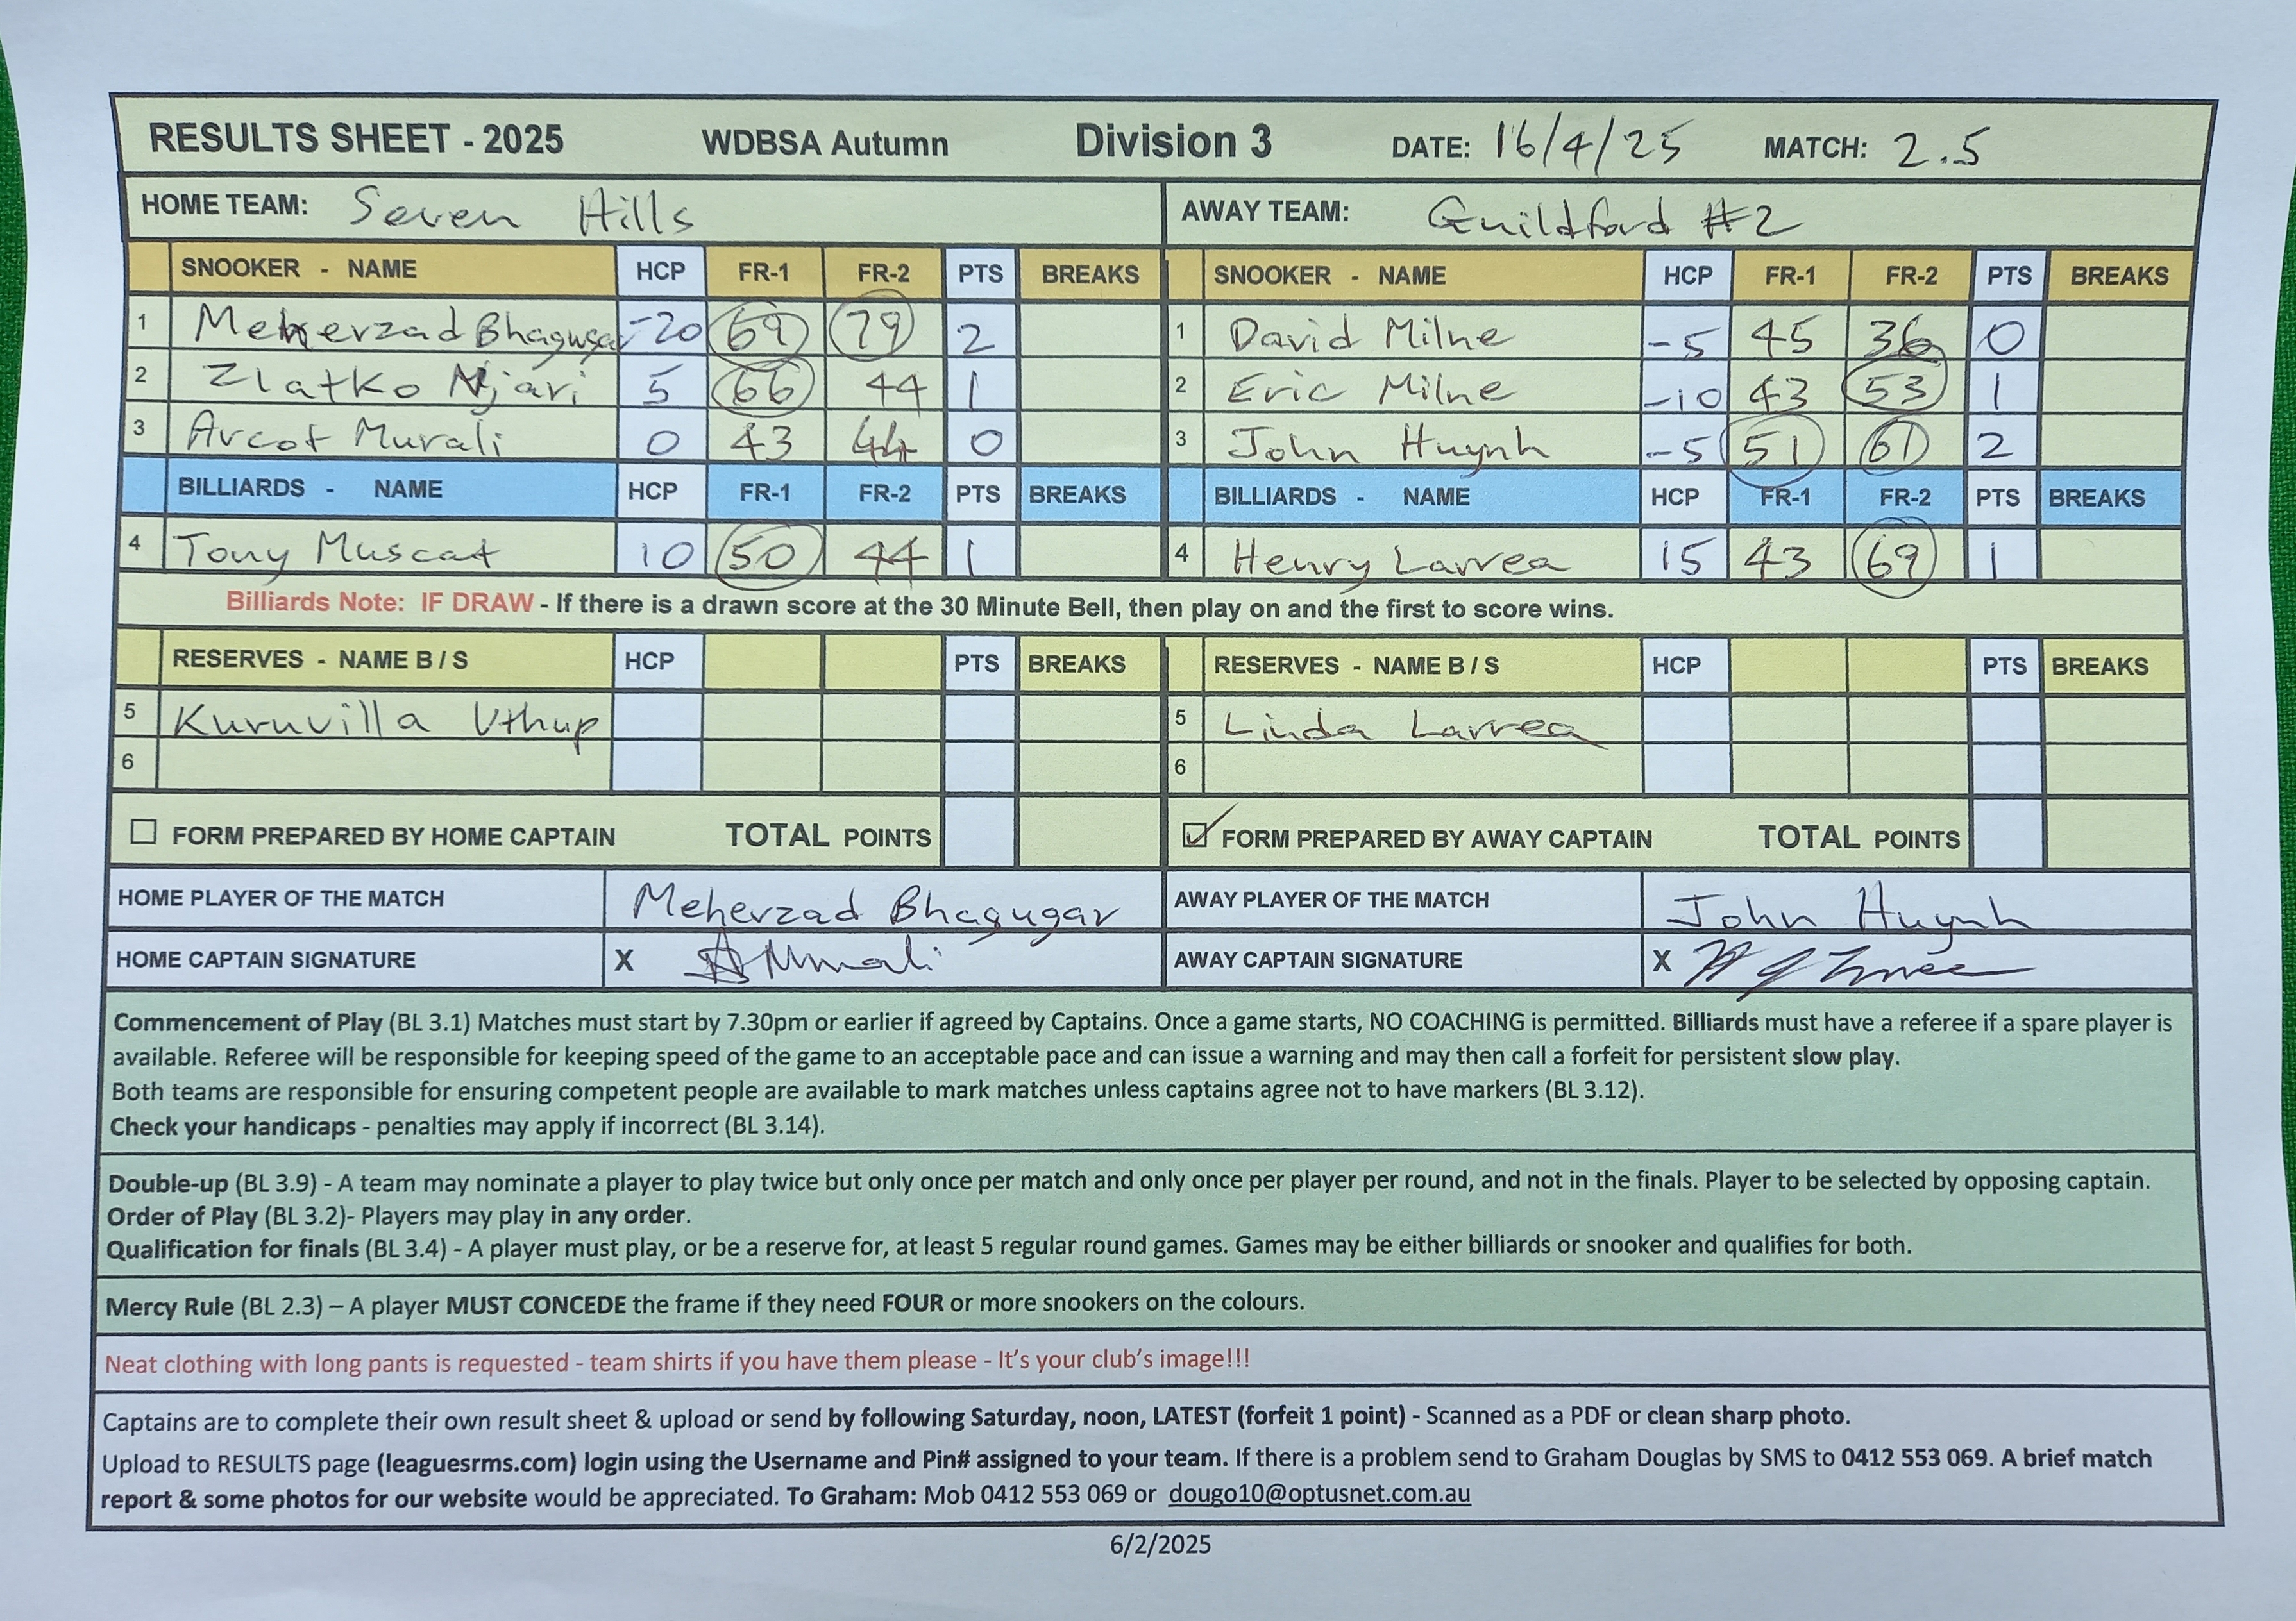 RESULTS SHEET - 2025 WDBSA Autumn Division 3 DATE: 16/4/25 MATCH: 2.5
HOME TEAM: Seven Hills AWAY TEAM: Guildford #2
SNOOKER - NAME HCP FR-1 FR-2 PTS BREAKS SNOOKER - NAME HCP FR-1 FR-2 PTS BREAKS
1 Meherzad Bhagugar -20 69 79 2 1 David Milne -5 45 36 0
2 Zlatko Njari 5 66 44 1 2 Eric Milne -10 43 53 1
3 Arcot Murali 0 43 44 0 3 John Huynh -5 51 61 2
BILLIARDS - NAME HCP FR-1 FR-2 PTS BREAKS BILLIARDS - NAME HCP FR-1 FR-2 PTS BREAKS
4 Tony Muscat 10 50 44 1 4 Henry Larrea 15 43 69 1
Billiards Note: IF DRAW - If there is a drawn score at the 30 Minute Bell, then play on and the first to score wins.
RESERVES - NAME B / S HCP PTS BREAKS RESERVES - NAME B / S HCP PTS BREAKS
5 Kuruvilla Uthup 5 Linda Larrea
6 6
FORM PREPARED BY HOME CAPTAIN TOTAL POINTS FORM PREPARED BY AWAY CAPTAIN TOTAL POINTS
HOME PLAYER OF THE MATCH Meherzad Bhagugar AWAY PLAYER OF THE MATCH John Huynh
HOME CAPTAIN SIGNATURE X AWAY CAPTAIN SIGNATURE X
Commencement of Play (BL 3.1) Matches must start by 7.30pm or earlier if agreed by Captains. Once a game starts, NO COACHING is permitted. Billiards must have a referee if a spare player is
available. Referee will be responsible for keeping speed of the game to an acceptable pace and can issue a warning and may then call a forfeit for persistent slow play.
Both teams are responsible for ensuring competent people are available to mark matches unless captains agree not to have markers (BL 3.12).
Check your handicaps - penalties may apply if incorrect (BL 3.14).
Double-up (BL 3.9) - A team may nominate a player to play twice but only once per match and only once per player per round, and not in the finals. Player to be selected by opposing captain.
Order of Play (BL 3.2)- Players may play in any order.
Qualification for finals (BL 3.4) - A player must play, or be a reserve for, at least 5 regular round games. Games may be either billiards or snooker and qualifies for both.
Mercy Rule (BL 2.3) – A player MUST CONCEDE the frame if they need FOUR or more snookers on the colours.
Neat clothing with long pants is requested - team shirts if you have them please - It's your club's image!!!
Captains are to complete their own result sheet & upload or send by following Saturday, noon, LATEST (forfeit 1 point) - Scanned as a PDF or clean sharp photo.
Upload to RESULTS page (leaguesrms.com) login using the Username and Pin# assigned to your team. If there is a problem send to Graham Douglas by SMS to 0412 553 069. A brief match
report & some photos for our website would be appreciated. To Graham: Mob 0412 553 069 or dougo10@optusnet.com.au
6/2/2025